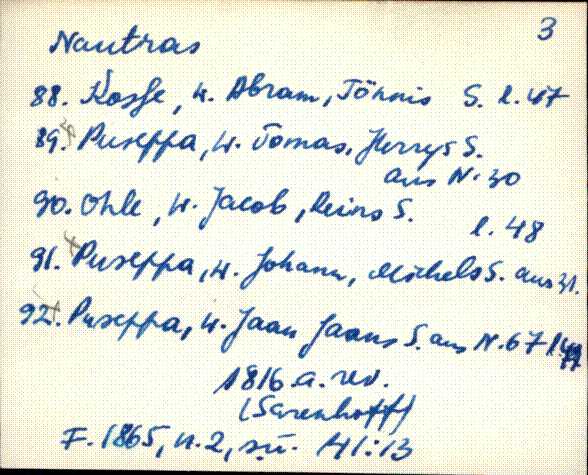 3
Nautras
88. Kosse, w. Abram, Tönnis S. l. 47
89. Puseppa, w. Tomas, Jürrys S.
aus N. 30
90. Ohle, w. Jacob, Reins S.
l. 48
91. Puseppa, w. Johann, Michels S. aus 31.
92. Puseppa, w. Jaan Jaans S. aus N. 67 l. 49
1816.a. rev.
(Sarenhoff)
F. 1865, n. 2, sü. 41:13